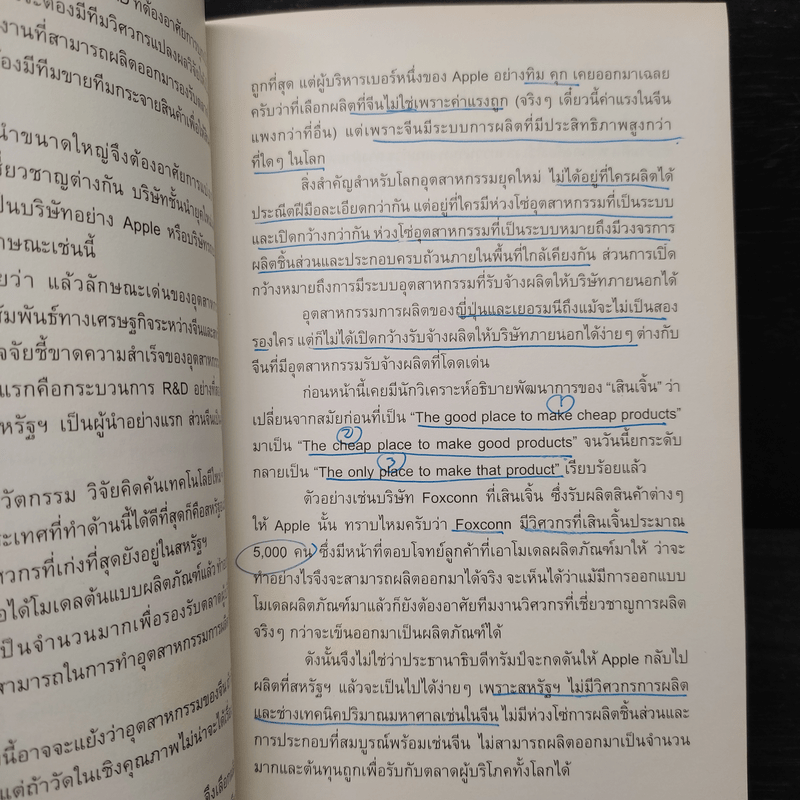 ต้องอาศัยการ
จะต้องมีทีมวิศวกรแปลงผลวิจัย
งานที่สามารถผลิตออกมารองรับ
ต้องมีทีมขายทีมกระจายสินค้าเพื่อ
นำขนาดใหญ่จึงต้องอาศัยการ
เชี่ยวชาญต่างกัน บริษัทชั้นนำยุคใหม่
เป็นบริษัทอย่าง Apple หรือบริษัท
ลักษณะเช่นนี้
ว่า แล้วลักษณะเด่นของอุตสาหกรรม
สัมพันธ์ทางเศรษฐกิจระหว่างจีนและ
จจัยชี้ขาดความสำเร็จของอุตสาหกรรม
แรกคือกระบวนการ R&D อย่าง
หรัฐฯ เป็นผู้นำอย่างแรก ส่วนจีน
วัตกรรม วิจัยคิดค้นเทคโนโลยีใหม่
ประเทศที่ทำด้านนี้ได้ดีที่สุดก็คือสหรัฐ
วิศวกรที่เก่งที่สุดยังอยู่ในสหรัฐฯ
อได้โมเดลต้นแบบผลิตภัณฑ์แล้ว
เป็นจำนวนมากเพื่อรองรับตลาด
สามารถในการทำอุตสาหกรรมการผลิต
นี้อาจจะแย้งว่าอุตสาหกรรมของจีน
แต่ถ้าวัดในเชิงคุณภาพไม่น่าจะได้
จึงเลือก
ถูกที่สุด แต่ผู้บริหารเบอร์หนึ่งของ Apple อย่างทิม คุก เคยออกมาเฉลย
ครับว่าที่เลือกผลิตที่จีนไม่ใช่เพราะค่าแรงถูก (จริงๆ เดี๋ยวนี้ค่าแรงในจีน
แพงกว่าที่อื่น) แต่เพราะจีนมีระบบการผลิตที่มีประสิทธิภาพสูงกว่า
ที่ใดๆ ในโลก
สิ่งสำคัญสำหรับโลกอุตสาหกรรมยุคใหม่ ไม่ได้อยู่ที่ใครผลิตได้
ประณีตฝีมือละเอียดกว่ากัน แต่อยู่ที่ใครมีห่วงโซ่อุตสาหกรรมที่เป็นระบบ
และเปิดกว้างกว่ากัน ห่วงโซ่อุตสาหกรรมที่เป็นระบบหมายถึงมีวงจรการ
ผลิตชิ้นส่วนและประกอบครบถ้วนภายในพื้นที่ใกล้เคียงกัน ส่วนการเปิด
กว้างหมายถึงการมีระบบอุตสาหกรรมที่รับจ้างผลิตให้บริษัทภายนอกได้
อุตสาหกรรมการผลิตของญี่ปุ่นและเยอรมนีถึงแม้จะไม่เป็นสอง
รองใคร แต่ก็ไม่ได้เปิดกว้างรับจ้างผลิตให้บริษัทภายนอกได้ง่ายๆ ต่างกับ
จีนที่มีอุตสาหกรรมรับจ้างผลิตที่โดดเด่น
ก่อนหน้านี้เคยมีนักวิเคราะห์อธิบายพัฒนาการของ “เสินเจิ้น” ว่า
①
เปลี่ยนจากสมัยก่อนที่เป็น “The good place to make cheap products”
②
มาเป็น “The cheap place to make good products” จนวันนี้ยกระดับ
③
กลายเป็น “The only place to make that product” เรียบร้อยแล้ว
ตัวอย่างเช่นบริษัท Foxconn ที่เสินเจิ้น ซึ่งรับผลิตสินค้าต่างๆ
ให้ Apple นั้น ทราบไหมครับว่า Foxconn มีวิศวกรที่เสินเจิ้นประมาณ
5,000 คน ซึ่งมีหน้าที่ตอบโจทย์ลูกค้าที่เอาโมเดลผลิตภัณฑ์มาให้ ว่าจะ
ทำอย่างไรจึงจะสามารถผลิตออกมาได้จริง จะเห็นได้ว่าแม้มีการออกแบบ
โมเดลผลิตภัณฑ์มาแล้วก็ยังต้องอาศัยทีมงานวิศวกรที่เชี่ยวชาญการผลิต
จริงๆ กว่าจะเข็นออกมาเป็นผลิตภัณฑ์ได้
ดังนั้นจึงไม่ใช่ว่าประธานาธิบดีทรัมป์จะกดดันให้ Apple กลับไป
ผลิตที่สหรัฐฯ แล้วจะเป็นไปได้ง่ายๆ เพราะสหรัฐฯ ไม่มีวิศวกรการผลิต
และช่างเทคนิคปริมาณมหาศาลเช่นในจีน ไม่มีห่วงโซ่การผลิตชิ้นส่วนและ
การประกอบที่สมบูรณ์พร้อมเช่นจีน ไม่สามารถผลิตออกมาเป็นจำนวน
มากและต้นทุนถูกเพื่อรับกับตลาดผู้บริโภคทั้งโลกได้